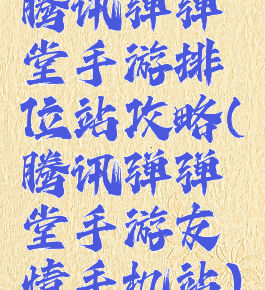 腾讯弹弹
堂手游排
位站攻略(
腾讯弹弹
堂手游友
情手机站)